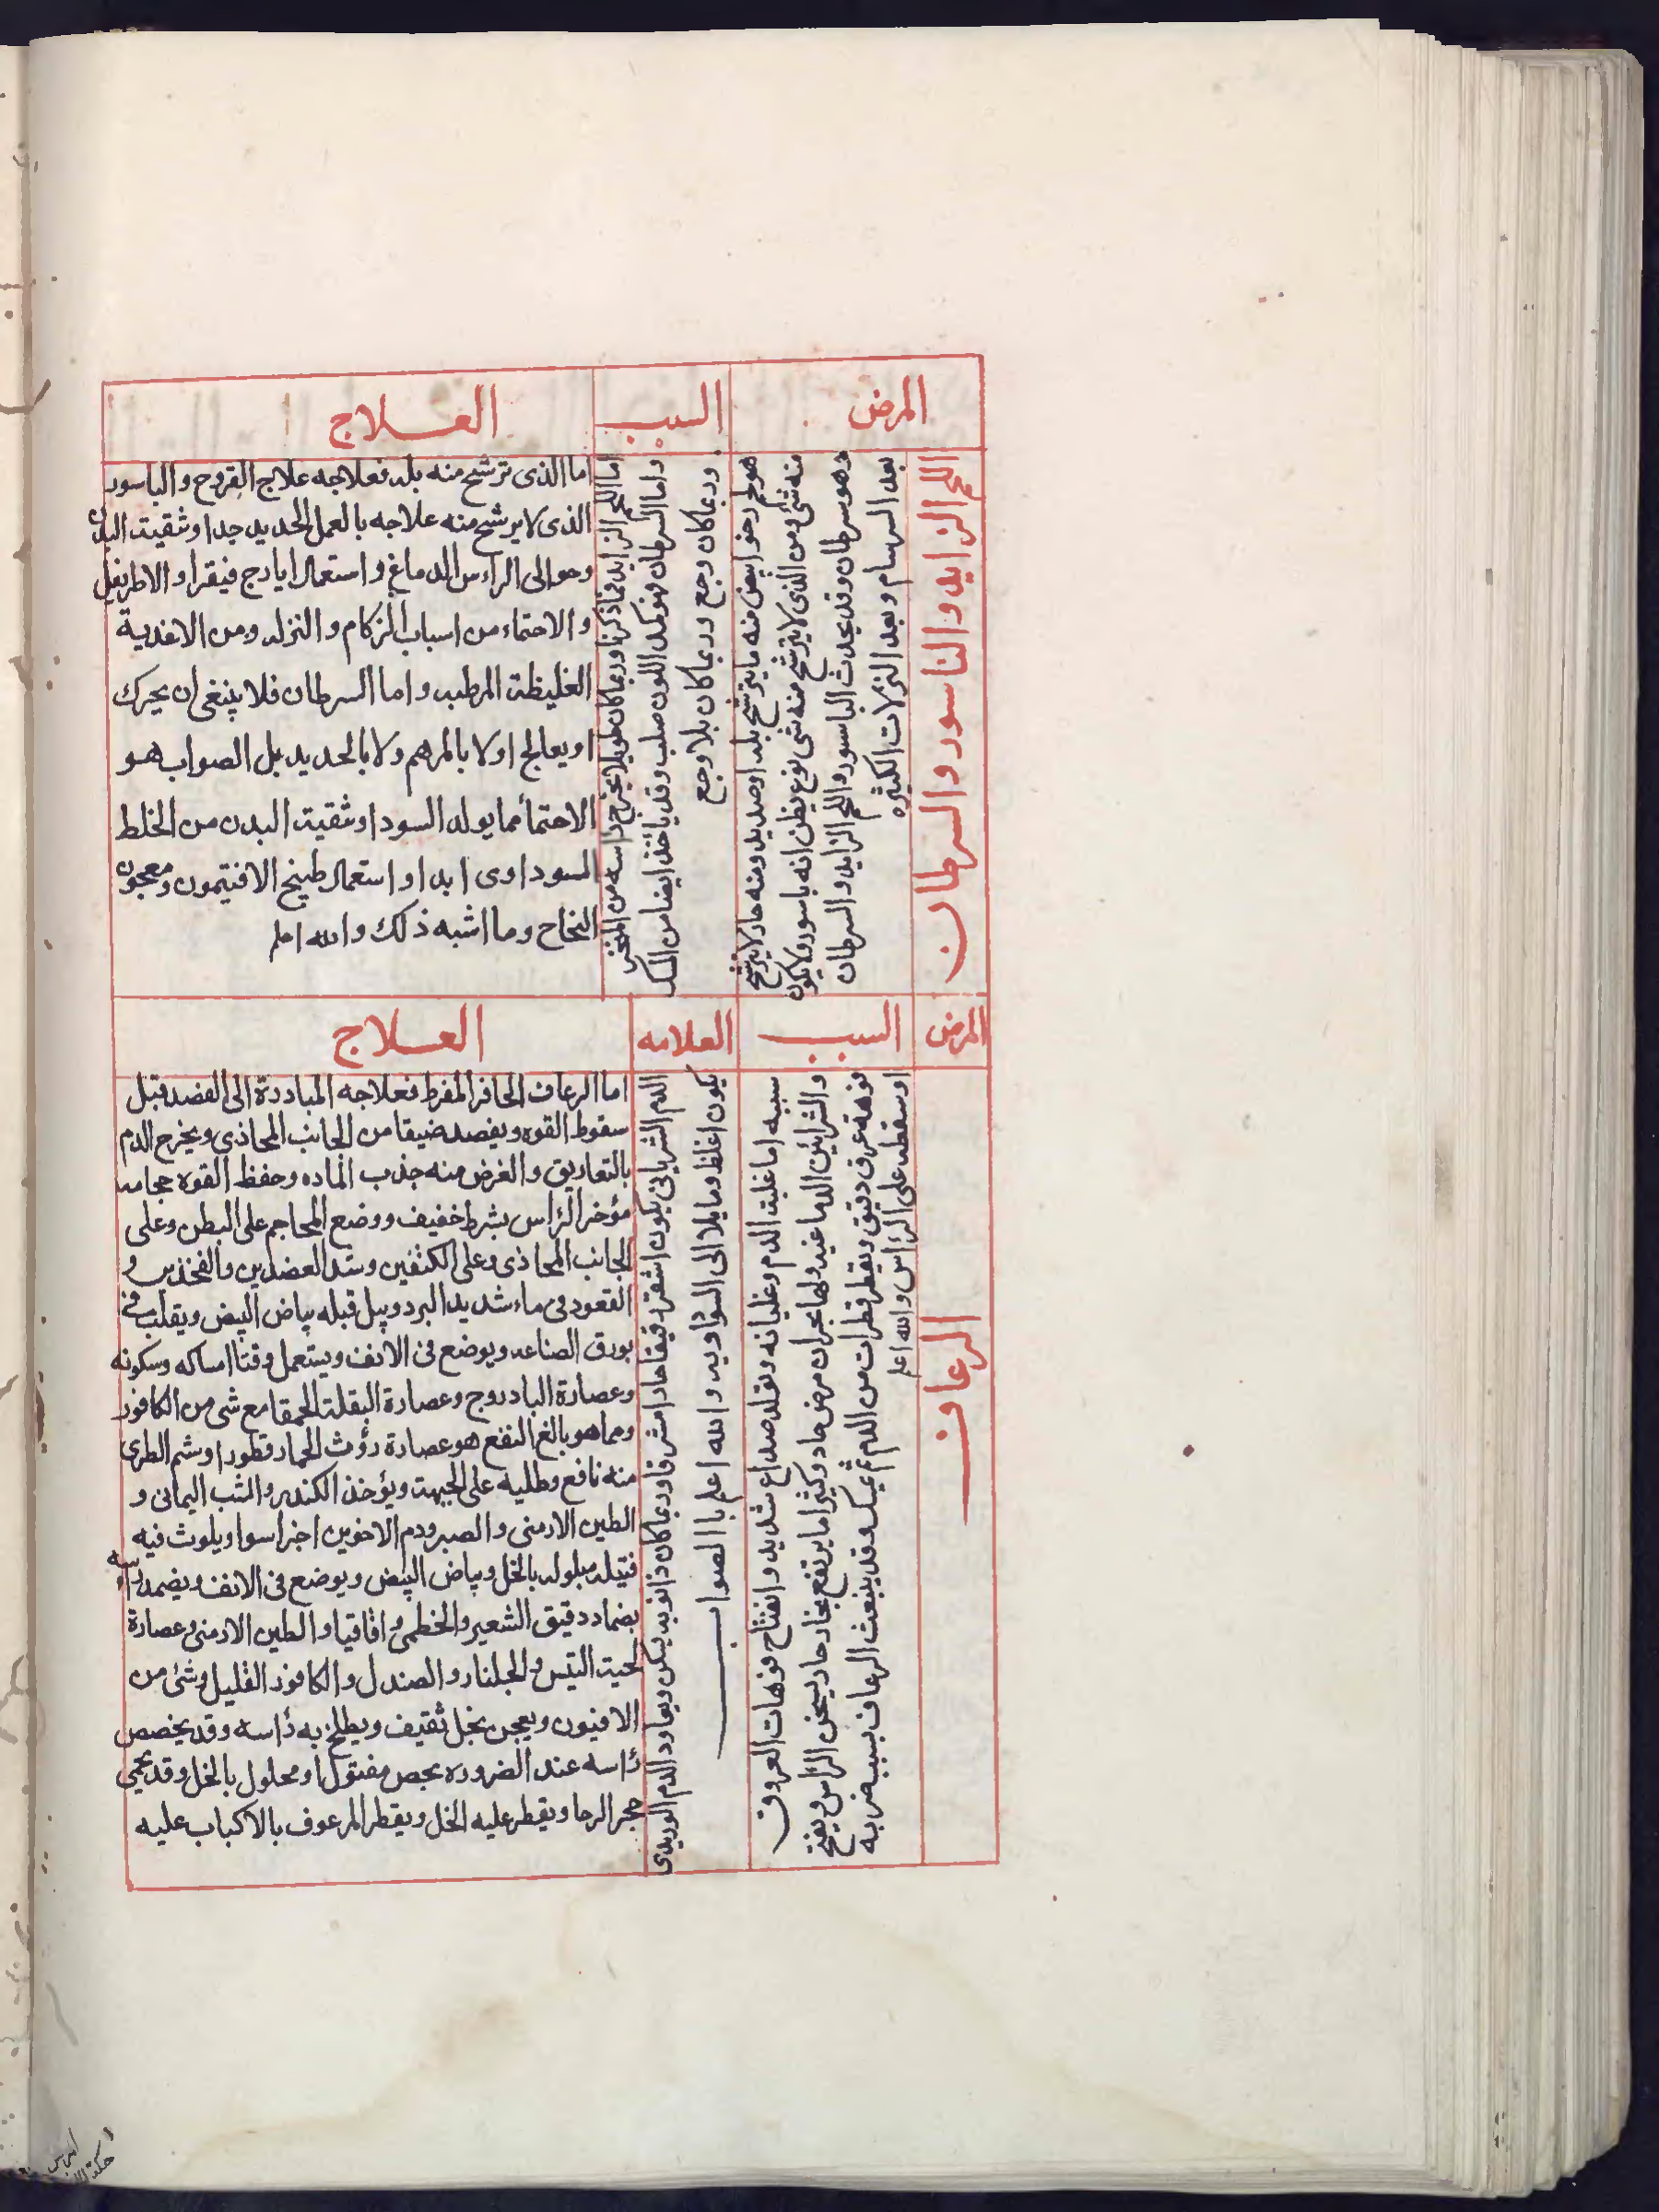 المرض
السبب
العلاج
اللحم الزايد والناسور والسرطان
هو لحم رخو ابيض منه ما يترشح بلد او صديد ومنه حار لا يترشح
منه شى ومن الذى لا يترشح منه شى نوع يظن انه باسور ولا يكون
وهو سرطان وقد يحدث الباسور واللحم الزايد والسرطان
بعد السرسام وبعد النزلات الكثيره
اما اللحم الزايد فما ذكرنا وربما كان طويلا يخرج راسه من المنخر
واما السرطان فهو كمد اللون صلب وقد ياخذ ايضا من الحنك
وربما كان وجع وربما كان بلا وجع
اما الذى ترشح منه بلد فعلاجه علاج القروح والباسور
الذى لا يرشح منه علاجه بالعمل الحديد جدا وثقيت البدن
وحوالى الراس الدماغ واستعمال ايادج فيقرا والاطريفل
والاحتماء من اسباب الزكام والنزله ومن الاغدية
الغليظة المرطبه واما السرطان فلا ينبغى ان يحرك
او يعالج اولا بالمرهم ولا بالحديد بل الصواب هو
الاحتمأ مما يولد السودا وثقيت البدن من الخلط
المسوداوى ابدا واستعمال طبيخ الافتيمون ومعجون
النجاح وما اشبه ذلك والله اعلم
المرض
السبب
العلامه
العلاج
الرعاف
سببه اما غلبة الدم وغليانه وتقلد صداع شديد وانفتاح فوهات العروق
والشرائين الدماغيه ولها بحران مرض حاد وكثيرا ما يرتفع بخار حار يسخن الراس ويفتح
فوهة عرق دقيق ويقطر قطرات من الدم ثم يمسك وقد ينبعث الرعاف بسبب ضربه
او سقطه على الرأس والله اعلم
الدم الشريانى يكون اشقر رقيقا حادا مشرقا وربما كان ذا نوبه يسكن ويعاود الدم الوريدى
يكون اغلظ ومايلا الى السوداويه والله اعلم با الصواب
اما الرعاف الحافز المفرط فعلاجه المباددة الى الفصد قبل
سقوط القوه ويفصد ضيقا من الجانب المحاذى ويخرج الدم
بالتعاريق والغرض منه جذب الماده وحفظ القوه حجامه
مؤخر الرأس بشرط خفيف ووضع المحاجم على البطن وعلى
الجانب المحاذى وعلى الكتفين وشد العضدين والفخذين و
القعود فى ماء شديد البرد ويبل قبله بياض البيض ويقلب فى
بورق الصناعه ويوضع فى الانف ويستعمل وقتا امساكه وسكونه
وعصارة البادروج وعصارة البقلة الحمقا مع شى من الكافور
ومما هو بالغ النفع هو عصارة رؤث الحمار قطورا وشم الطرى
منه نافع وطليه على الجبهت ويؤخذ الكندر والشب اليمانى و
الطين الارمنى والصبر ودم الاخوين اجزا سوا ويلوث فيه
فتيله مبلوله بالخل وبياض البيض ويوضع فى الانف ويضمد راسه
بضماد دقيق الشعير والخطمى واقاقيا والطين الارمنى وعصارة
لحيت التيس والجلنار والصندل والكافور القليل وشئ من
الافيون ويعجن بخل ثقيف ويطلى به رأسه وقد يخصص
رأسه عند الضروره بجص مفتول او محلول بالخل وقد يحمى
حجر الرحا ويقطر عليه الخل ويقطر المرعوف بالاكباب عليه